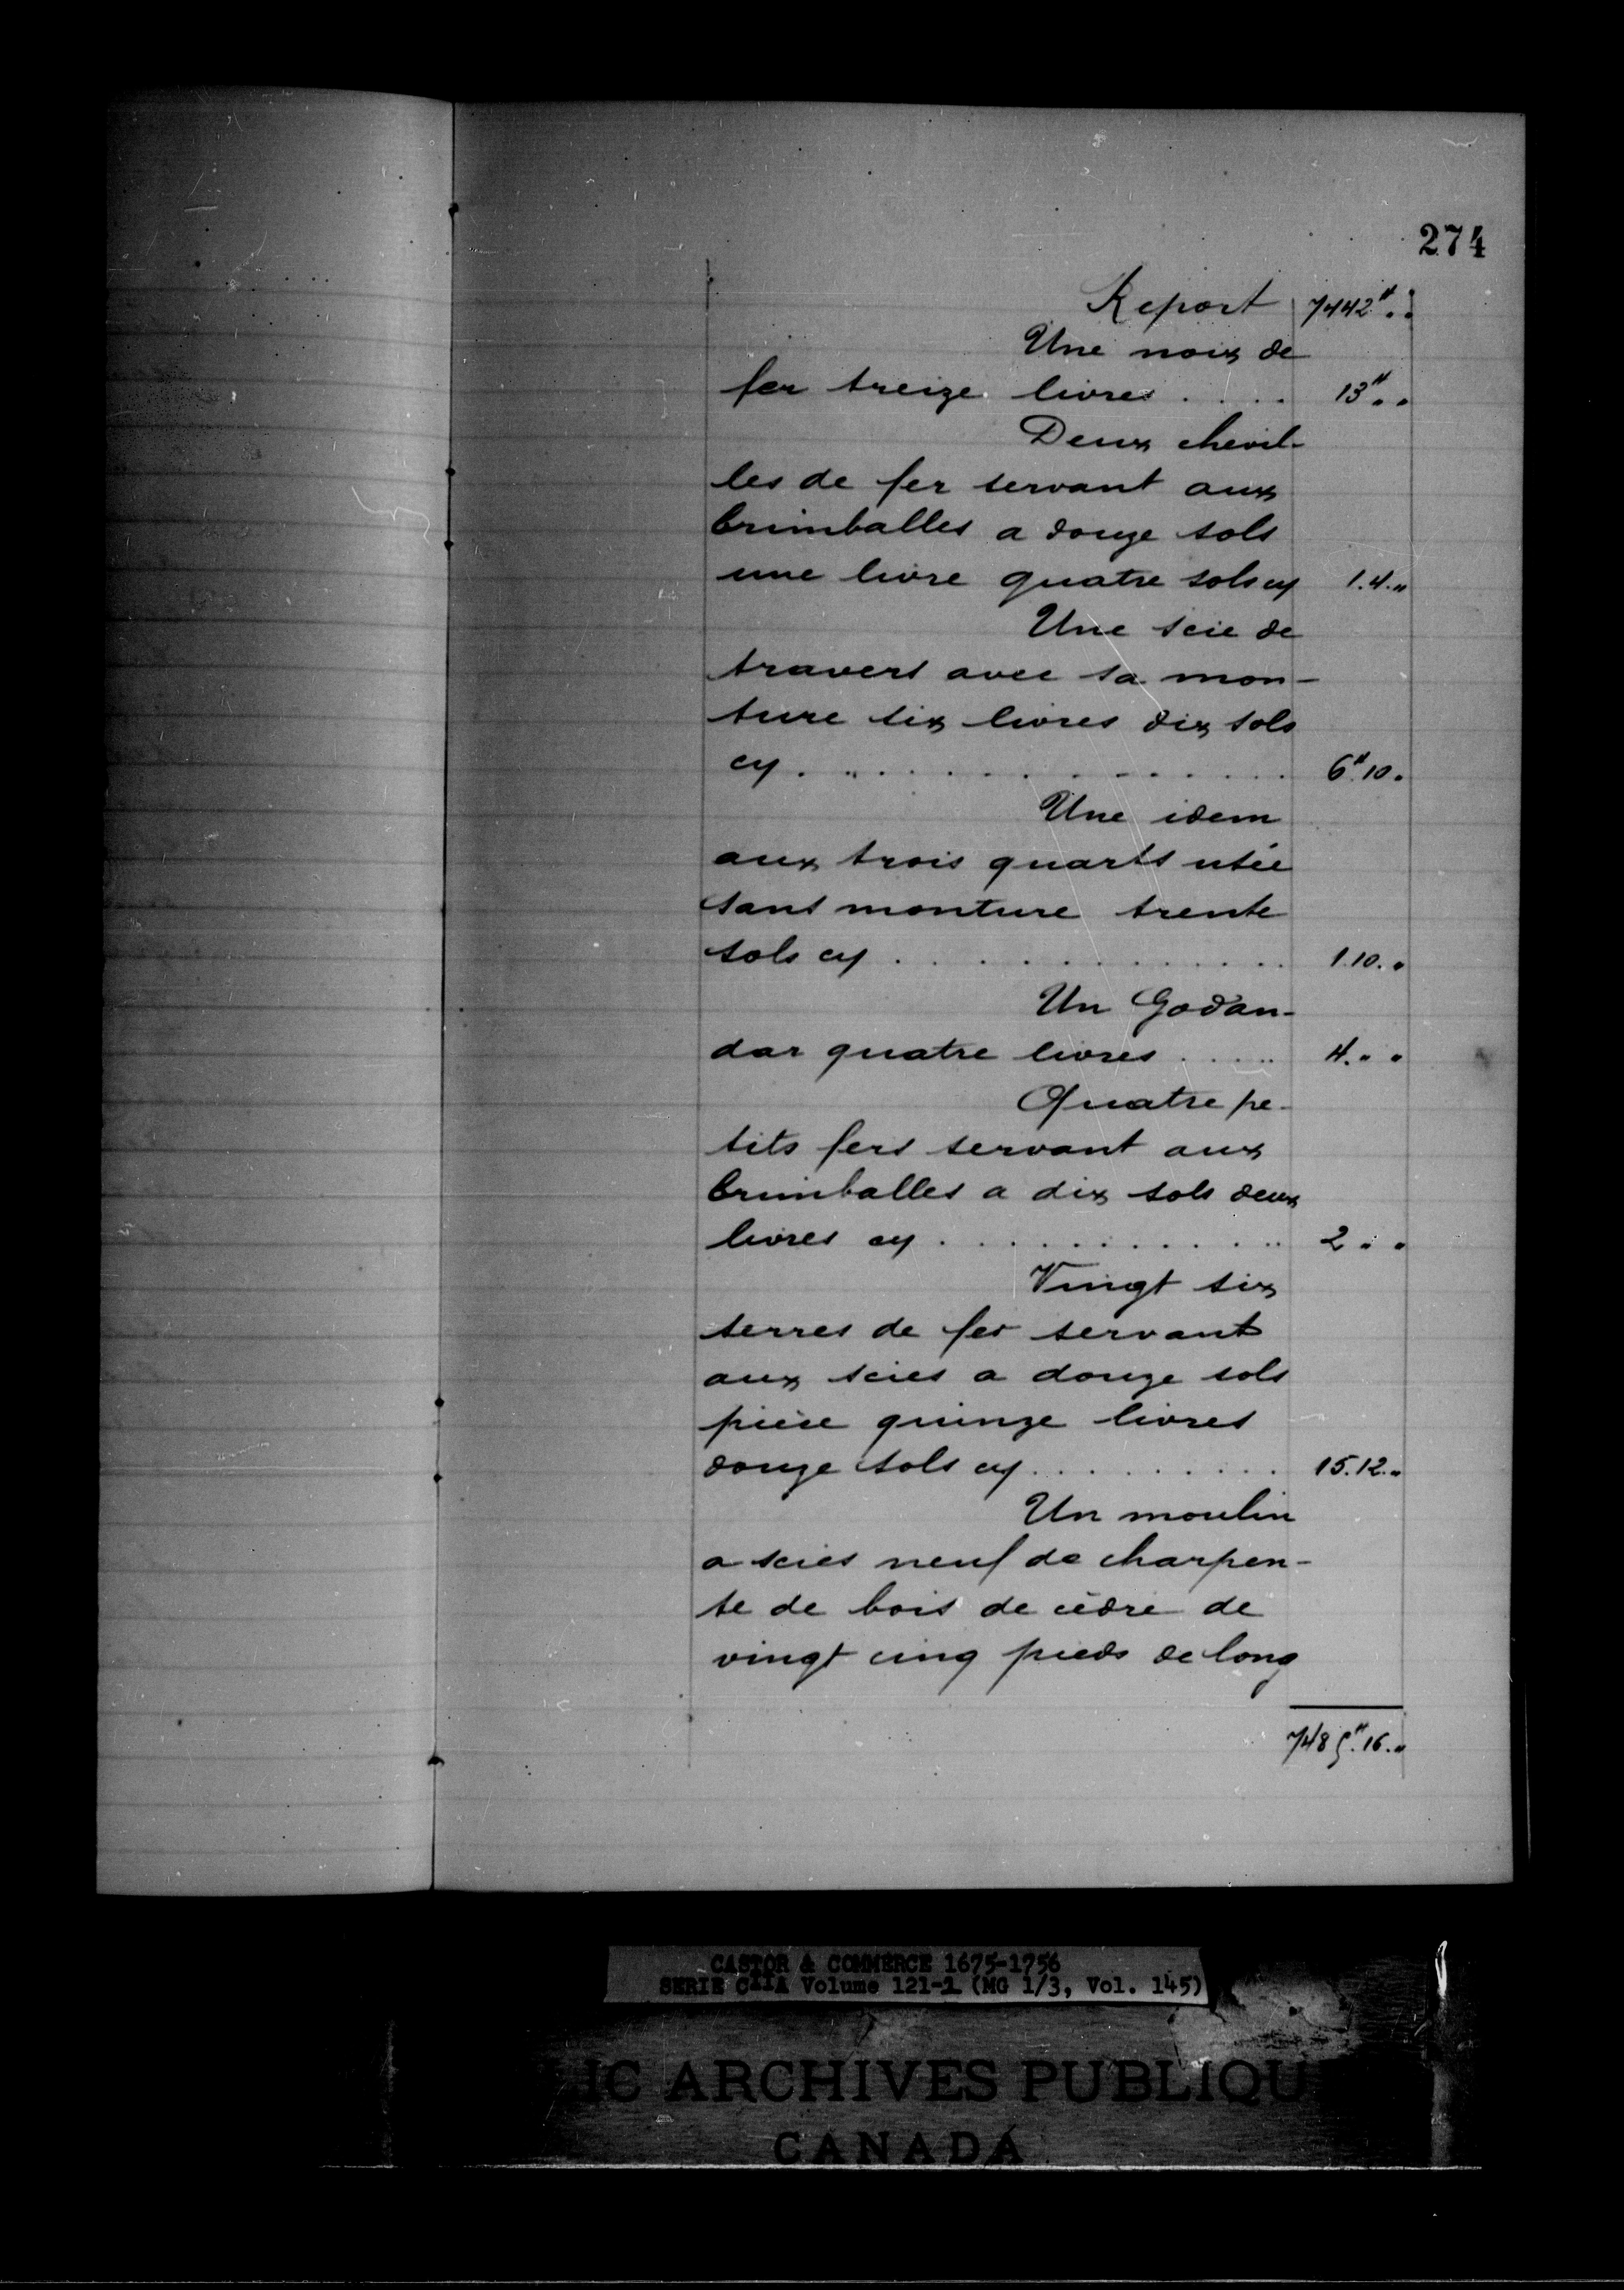 274
Report 7442# " "
Une noix de
fer treize livres . . . . 13# " "
Deux chevil-
les de fer servant aux
brimballes a douze sols
une livre quatre sols cy 1.4."
Une scie de
travers avec sa mon-
ture six livres dix sols
cy . . . . . . . . . . . . 6#10.
Une idem
aux trois quarts usée
sans monture trente
sols cy . . . . . . . . . . 1.10. "
Un Godan-
dar quatre livres . . . . 4. " "
Quatre pe-
tits fers servant aux
brimballes a dix sols deux
livres cy . . . . . . . . . 2 " "
Vingt six
serres de fer servant
aux scies a douze sols
pièce quinze livres
douze sols cy . . . . . . . 15.12."
Un moulin
a scies neuf de charpen-
te de bois de cèdre de
vingt cinq pieds de long
7485#.16."
CASTOR & COMMERCE 1675-1756
SERIE C11A Volume 121-1 (MG 1/3, Vol. 145)
IC ARCHIVES PUBLIQU
CANADA